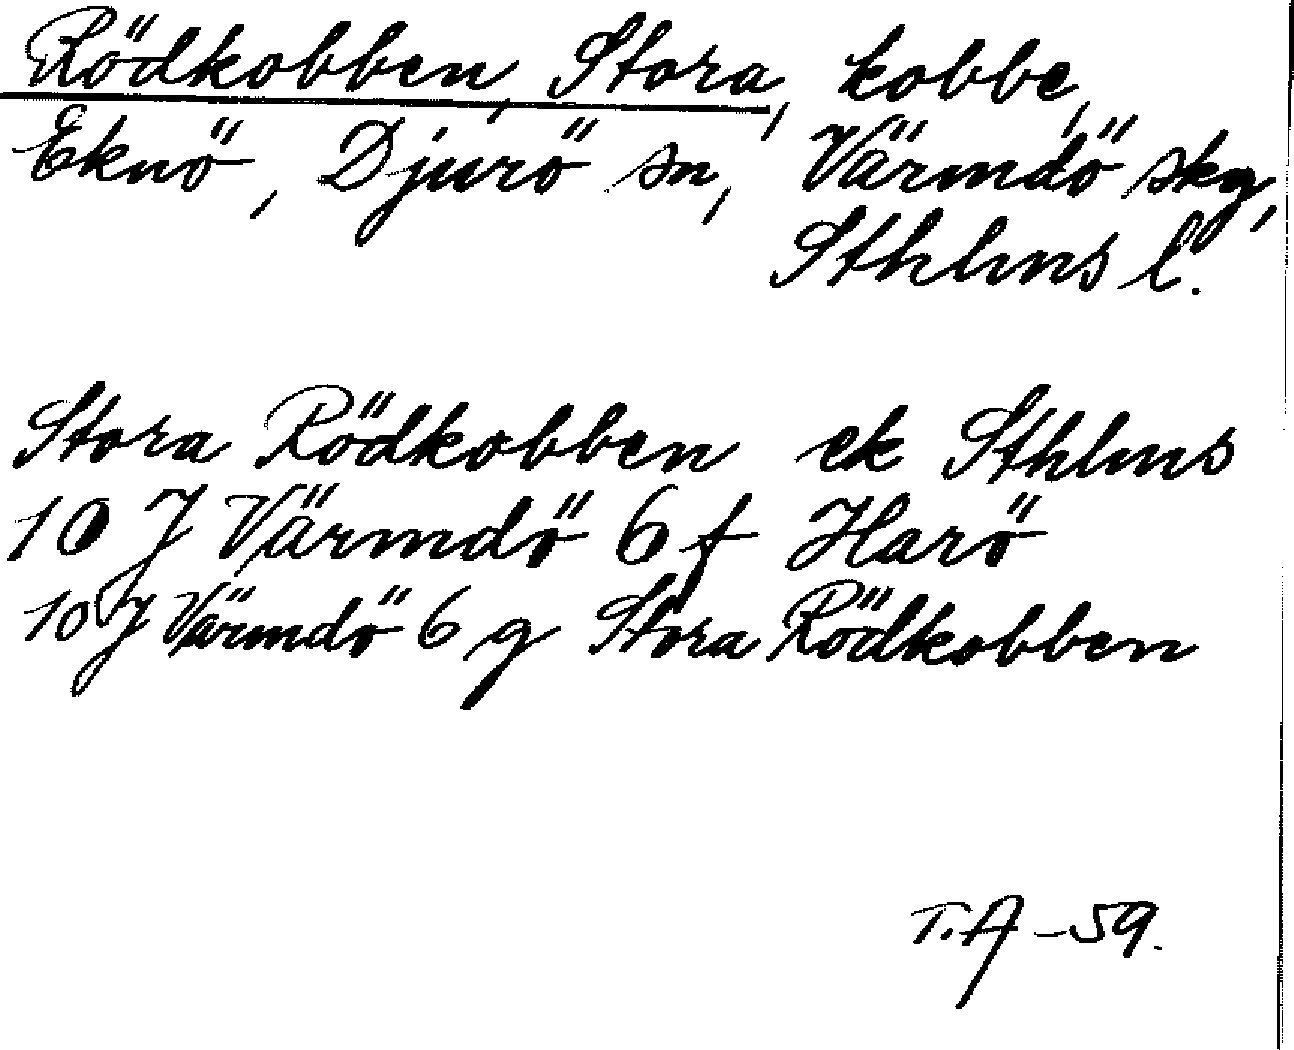 Rödkobben, Stora, kobbe,
Eknö, Djurö sn, Värmdö skg,
Sthlms l.
Stora Rödkobben ek Sthlms
10 J Värmdö 6 f Harö
10 J Värmdö 6 g Stora Rödkobben
T.A -59.